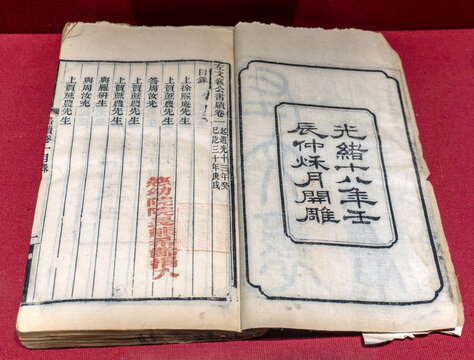 光緒十八年壬
辰仲秋月開雕
左文襄公書牘卷一
起道光十三年癸
巳訖三十年庚戌
目錄
上徐熙庵先生
上賀蔗農先生
答周汝光
上賀蔗農先生
上賀蔗農先生
與羅研生
與周汝光
上賀蔗農先生
書牘卷一目錄
慈幼院院長熊希齡捐入